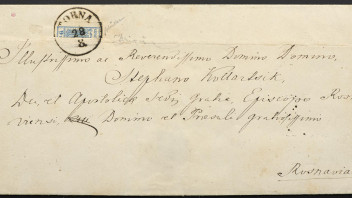 TORNA
28
X.
Illustrissimo ac Reverendissimo Domino Domino
Stephano Kollartsik,
Dei et Apostolicæ Sedis Gratia, Episcopo Ros
naviensi, Domino et Præsuli gratiosissimo
Rosnavia